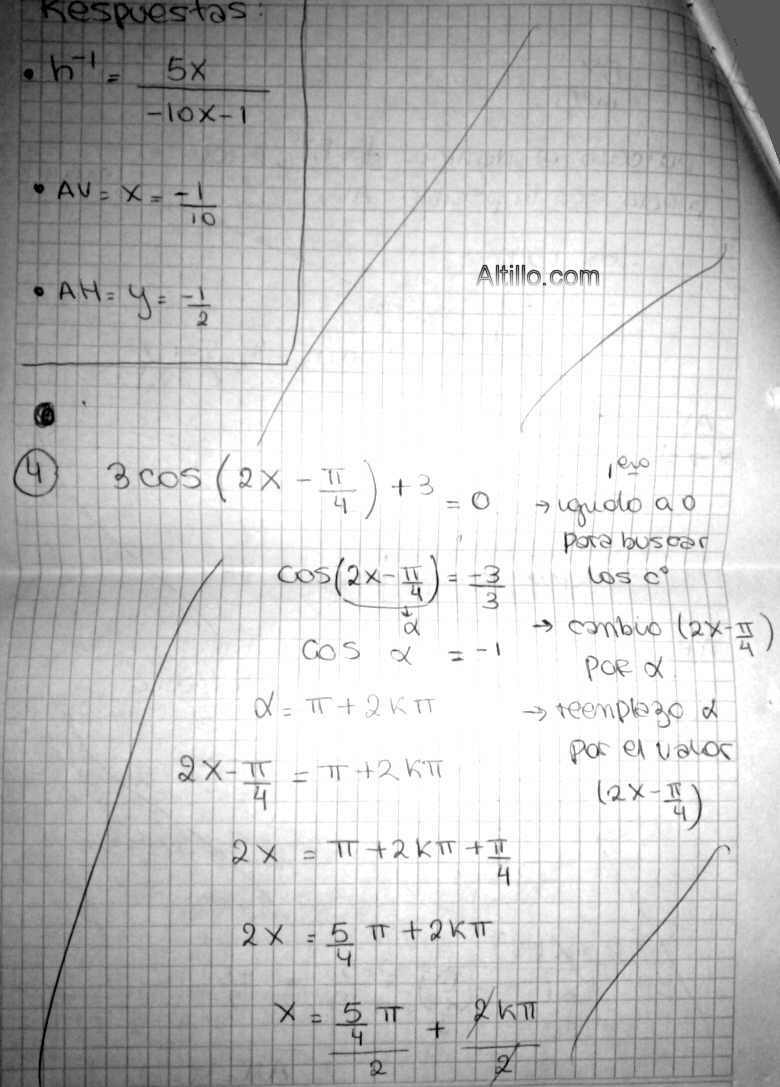 Respuestas:
• h⁻¹ = 5x / -10x-1
• AV = x = -1/10
Altillo.com
• AH = y = -1/2
④ 3 cos (2x - π/4) + 3 = 0 → igualo a 0
1ero
para buscar
los c°
cos(2x - π/4) = -3/3
α
→ cambio (2x - π/4)
por α
cos α = -1
α = π + 2kπ
→ reemplazo α
por el valor
(2x - π/4)
2x - π/4 = π + 2kπ
2x = π + 2kπ + π/4
2x = 5/4 π + 2kπ
x = 5/4 π / 2 + 2kπ / 2